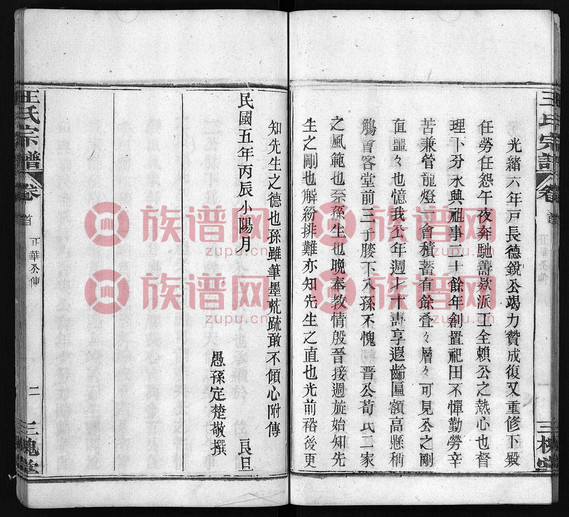 王氏宗譜 卷首
三槐堂
光緒六年戸長德鋭公竭力贊成復又重修下殿
任勞任怨午夜奔馳壽歘派工全賴公之熱心也督
理卜分永興祖事二十餘年創置祀田不憚勤勞辛
苦兼管龍燈會積蓄有餘叠々層々可見公之剛
直噩々也憶我公年週七十壽享遐齡匾額高懸稱
觴言客堂前三子膝下八孫不愧晋公荀氏二家
之風範也奈孫生也晚奉教情殷晉接週旋始知先
生之剛也解紛排難亦知先生之直也光前裕後更
知先生之德也孫雖筆墨荒疏敢不傾心附傳
民國五年丙辰小陽月 良旦
愚孫定楚敬撰
王氏宗譜 卷首 華公傳 二 三槐堂
族谱网
zupu.cn